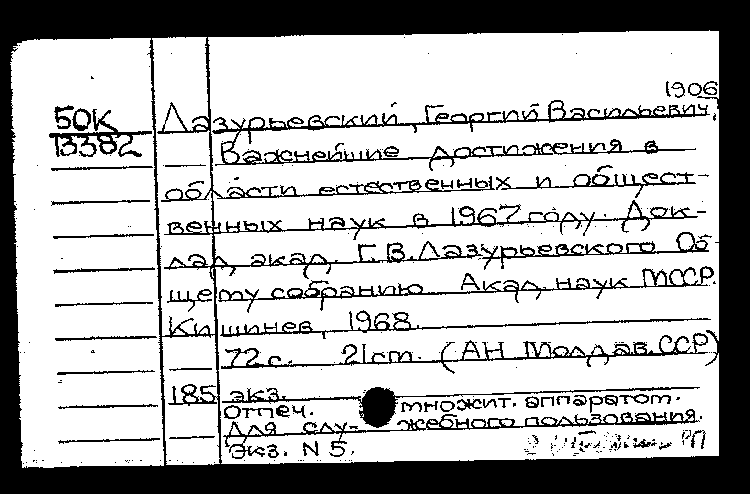 1906
50К Лазурьевский, Георгий Васильевич,
13382 Важнейшие достижения в
области естественных и общест-
венных наук в 1967 году. Док-
лад акад. Г.В.Лазурьевского Об-
щему собранию Акад. наук МССР.
Кишинев, 1968.
72 с. 21 cm. (АН Молдав.ССР)
185 экз.
Отпеч. множит. аппаратом.
Для слу- жебного пользования.
Экз. N 5.